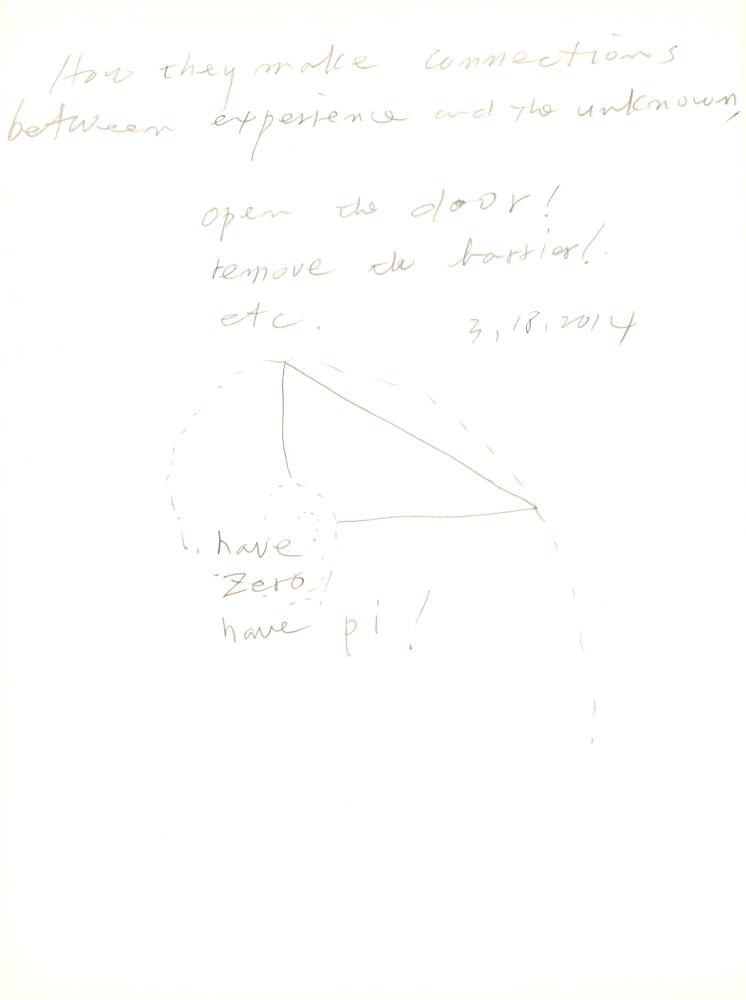 How they make connections
between experience and the unknown,
open the door!
remove the barrier!
etc.
3,18,2014
have
zero
have pi!